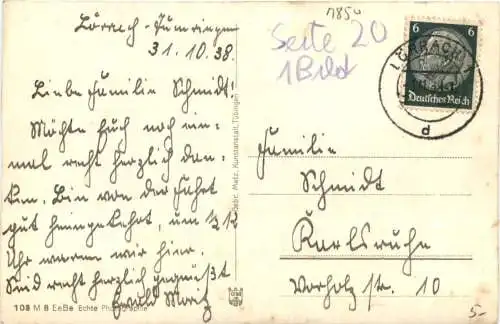 Lörrach-Tumringen
31.10.38.
Liebe Familie Schmidt!
Möchte Euch noch ein-
mal recht herzlich dan-
ken. Bin von der Fahrt
gut heimgekehrt, um ½ 12
Uhr waren wir hier.
Seid recht herzlich gegrüßt
Ewald Moritz
108 M 8 EeBe Echte Photographie
Gebr. Metz, Kunstanstalt, Tübingen
Seite 20
1 Bild
6 6
Deutsches Reich
LÖRRACH
d
Familie
Schmidt
Karlsruhe
Vorholz str. 10
5-